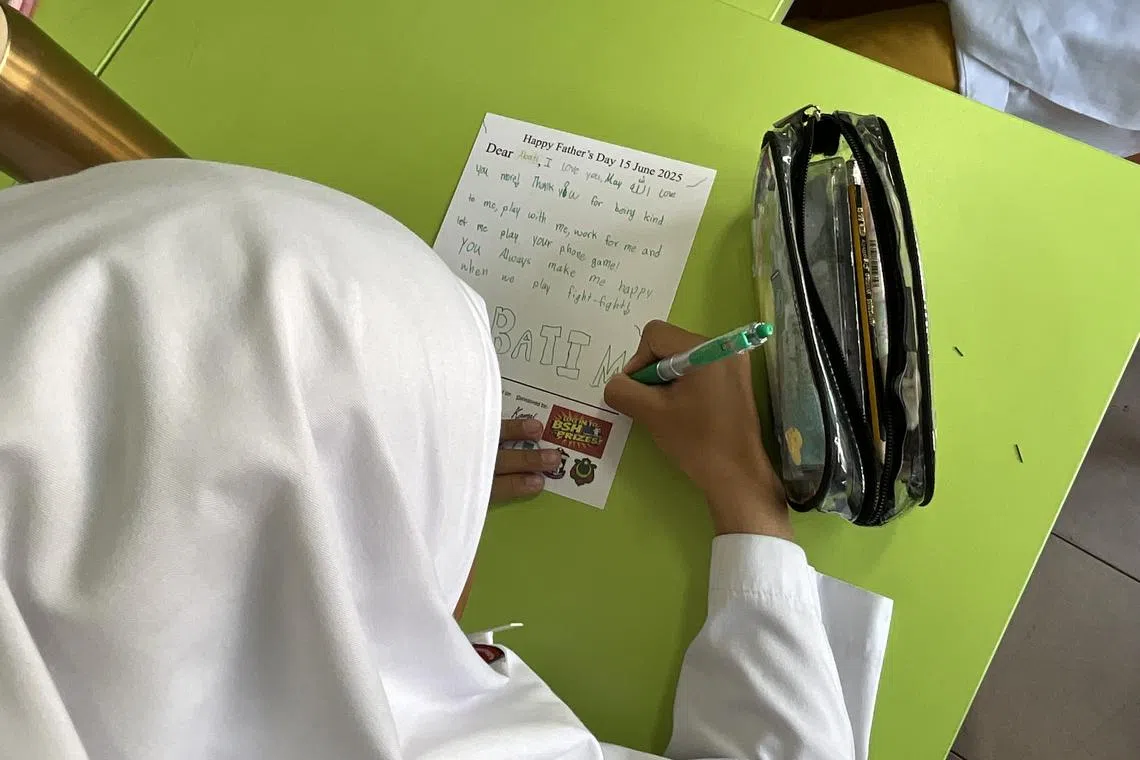 Happy Father's Day 15 June 2025
Dear Abati, I love you, May الله love
you more! Thank you for being kind
to me, play with me, work for me and
let me play your phone game!
You Always make me happy
when we play fight-fight!
BATI M
Sponsored by:
Kamal
BSH
PRIZES!